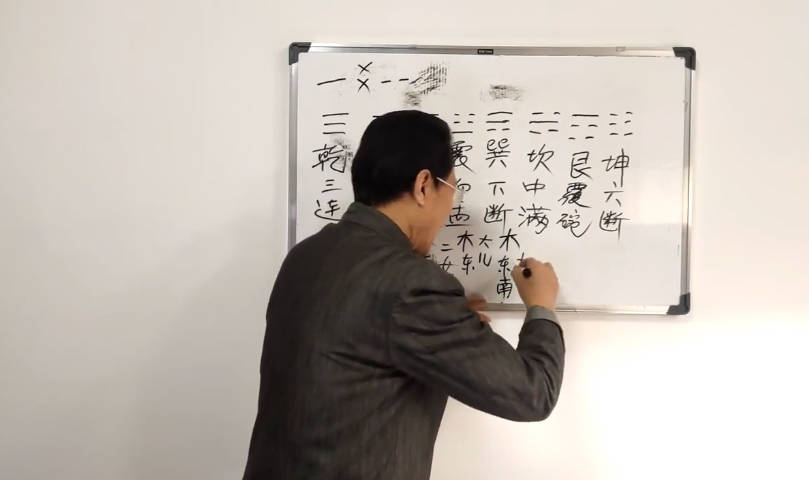 乾三连
二女
震仰盂
木东
大儿
巽下断
木东南
坎中满
艮覆碗
坤六断